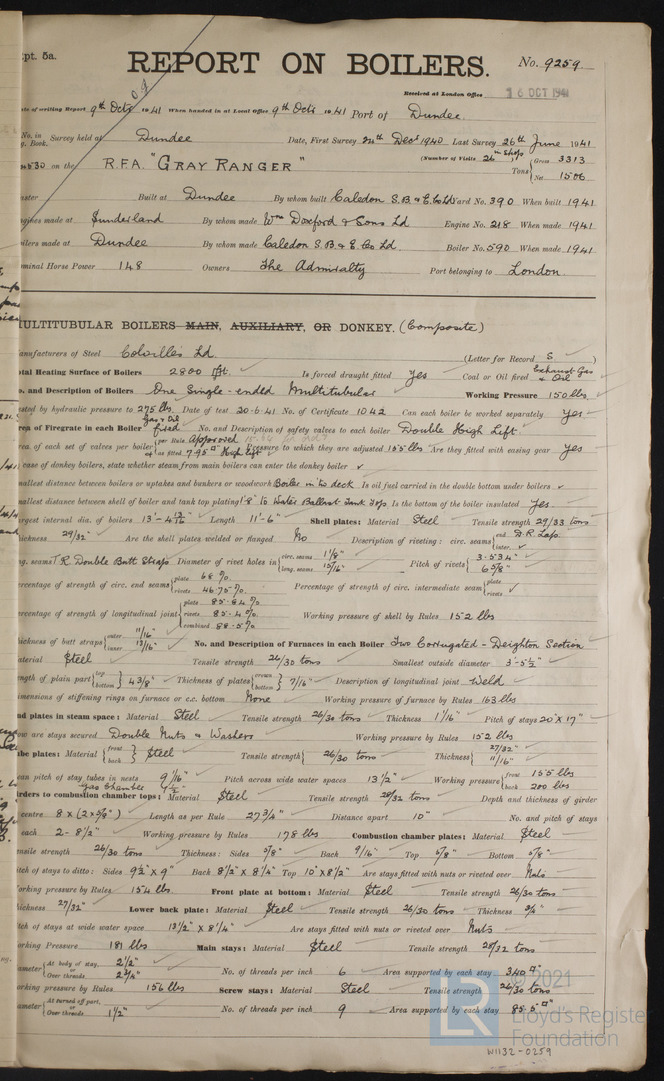 Rpt. 5a.
REPORT ON BOILERS.
No. 9259
Received at London Office 16 OCT 1941
Date of writing Report 9th Octr 1941 When handed in at Local Office 9th Octr 1941 Port of Dundee
No. in Survey held at Dundee Date, First Survey Decr 1940 Last Survey 26th June 1941
Book.
on the R.F.A. "GRAY RANGER" (Number of Visits 26) Tons Gross 3313
Net 1506
Built at Dundee By whom built Caledon S.B. & E. Co Ld Yard No. 390 When built 1941
Engines made at Sunderland By whom made Wm Doxford & Sons Ld Engine No. 218 When made 1941
Boilers made at Dundee By whom made Caledon S.B. & E. Co Ld Boiler No. 590 When made 1941
Nominal Horse Power 148 Owners The Admiralty Port belonging to London
MULTITUBULAR BOILERS MAIN, AUXILIARY, OR DONKEY. (Composite)
Manufacturers of Steel Colvilles Ld (Letter for Record S)
Total Heating Surface of Boilers 2800 Is forced draught fitted Yes Coal or Oil fired Exhaust Gas & Oil
No. and Description of Boilers One Single-ended Multitubular Working Pressure 150 lbs
Tested by hydraulic pressure to 275 lbs Date of test 20.6.41 No. of Certificate 1042 Can each boiler be worked separately Yes
Area of Firegrate in each Boiler Gas & Oil fired No. and Description of safety valves to each boiler Double High Lift
Area of each set of valves per boiler per Rule Approved as fitted 7.95 High lift Pressure to which they are adjusted 155 lbs Are they fitted with easing gear Yes
In case of donkey boilers, state whether steam from main boilers can enter the donkey boiler ✓
Smallest distance between boilers or uptakes and bunkers or woodwork Boiler on deck Is oil fuel carried in the double bottom under boilers ✓
Smallest distance between shell of boiler and tank top plating 1'8" to Water Ballast Tank Top Is the bottom of the boiler insulated Yes
Largest internal dia. of boilers Length 11'-6" Shell plates: Material Steel Tensile strength 29/33 tons
Thickness 29/32" Are the shell plates welded or flanged No Description of riveting: circ. seams end D.R. Laps
inter. ✓
long. seams T.R. Double Butt Straps Diameter of rivet holes in circ. seams 1 1/8" long. seams 15/16" Pitch of rivets 3.534" 6 5/8"
Percentage of strength of circ. end seams plate 68% rivets 46.75% Percentage of strength of circ. intermediate seam plate rivets ✓
Percentage of strength of longitudinal joint plate 85.84% rivets 85.4% combined 88.5% Working pressure of shell by Rules 152 lbs
Thickness of butt straps outer 11/16" inner 13/16" No. and Description of Furnaces in each Boiler Two Corrugated - Deighton Section
Material Steel Tensile strength 26/30 tons Smallest outside diameter 3'-5½"
Length of plain part top bottom 4 3/8" Thickness of plates crown bottom 7/16" Description of longitudinal joint Weld
Dimensions of stiffening rings on furnace or c.c. bottom None Working pressure of furnace by Rules 163 lbs
End plates in steam space: Material Steel Tensile strength 26/30 tons Thickness 1 1/16" Pitch of stays 20" X 17"
How are stays secured Double Nuts & Washers Working pressure by Rules 152 lbs
Tube plates: Material front back Steel Tensile strength 26/30 tons Thickness 27/32" 11/16"
Mean pitch of stay tubes in nests 9 1/16" Pitch across wide water spaces 13½" Working pressure front 155 lbs back 200 lbs
Girders to combustion chamber tops: Material Steel Tensile strength 28/32 tons Depth and thickness of girder
Gas Chamber
at centre 8 X (2 X 5/8") Length as per Rule 27¾" Distance apart 10" No. and pitch of stays
in each 2 - 8½" Working pressure by Rules 178 lbs Combustion chamber plates: Material Steel
Tensile strength 26/30 tons Thickness: Sides 5/8" Back 9/16" Top 5/8" Bottom 5/8"
Pitch of stays to ditto: Sides 9½" X 9" Back 8½" X 8¼" Top 10" X 8½" Are stays fitted with nuts or riveted over Nuts
Working pressure by Rules 154 lbs Front plate at bottom: Material Steel Tensile strength 26/30 tons
Thickness 27/32" Lower back plate: Material Steel Tensile strength 26/30 tons Thickness ¾"
Pitch of stays at wide water space 13½" X 8¼" Are stays fitted with nuts or riveted over Nuts
Working Pressure 181 lbs Main stays: Material Steel Tensile strength 28/32 tons
Diameter At body of stay, or Over threads 2½" 2¾" No. of threads per inch 6 Area supported by each stay 340 □"
Working pressure by Rules 156 lbs Screw stays: Material Steel Tensile strength 26/30 tons
Diameter At turned off part, or Over threads 1½" No. of threads per inch 9 Area supported by each stay 85.5 □"
© 2021
LR
Lloyd's Register
Foundation
W1132-0259